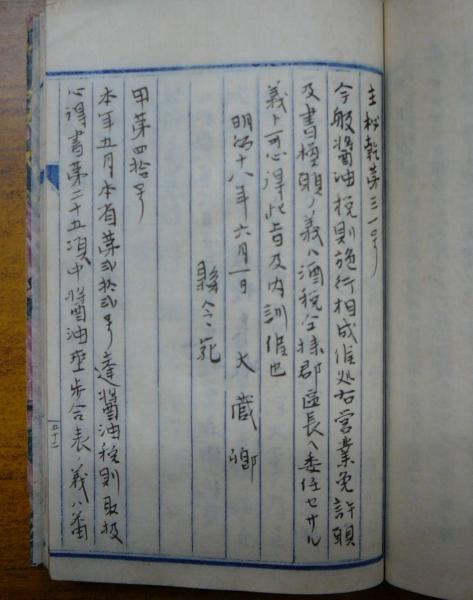 主秘乾第三一号
今般醤油税則施行相成候処右営業免許願
及書換願ノ義ハ酒税仝様郡区長ヘ委任セサル
義ト可心得此旨及内訓候也
明治十八年六月一日 大蔵卿
県令宛
甲第四拾号
本年五月本省第弐拾弐号達醤油税則取扱
心得書第二十五項中醤油歩合表ノ義ハ